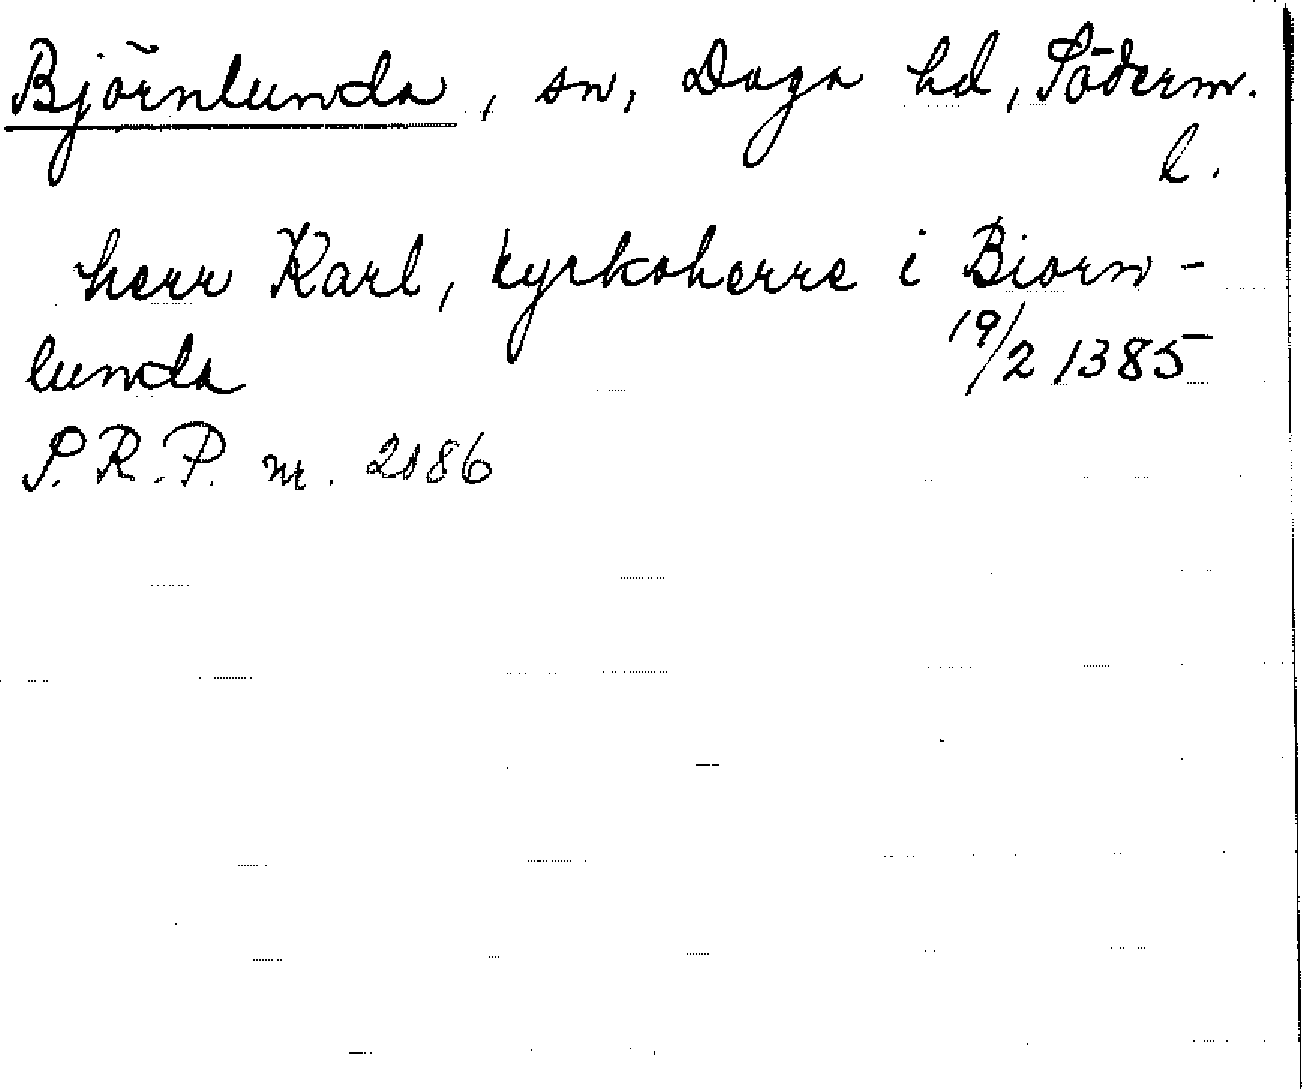 Björnlunda, sn, Daga hd, Söderm.
l.
herr Karl, kyrkoherre i Biorn-
lunda 19/2 1385
S.R.P. nr. 2186